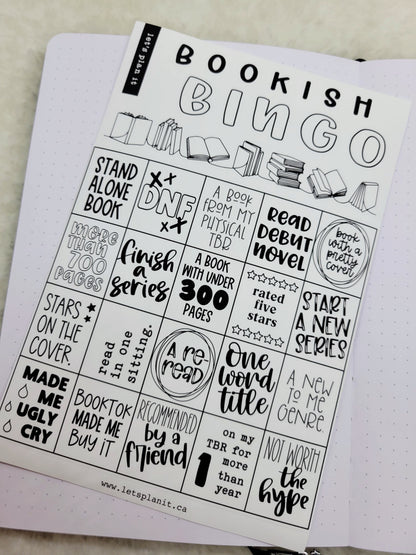 let's plan it
BOOKISH
BINGO
STAND
ALONE
BOOK
DNF
A BOOK
FROM MY
PHYSICAL
TBR
READ
DEBUT
NOVEL
book
with a
pretty
cover
more
THAN
700
PAGES
finish
a
series
A BOOK
WITH UNDER
300
PAGES
rated
five
stars
START
A NEW
SERIES
STARS
ON THE
COVER
read
in one
sitting.
A re
read
One
word
title
A NEW
TO ME
GENRE
MADE
ME
UGLY
CRY
BOOKTOK
MADE ME
BUY IT
RECOMMENDED
by a
friend
on my
TBR for
more
than
1 year
NOT WORTH
the
hype
www.letsplanit.ca